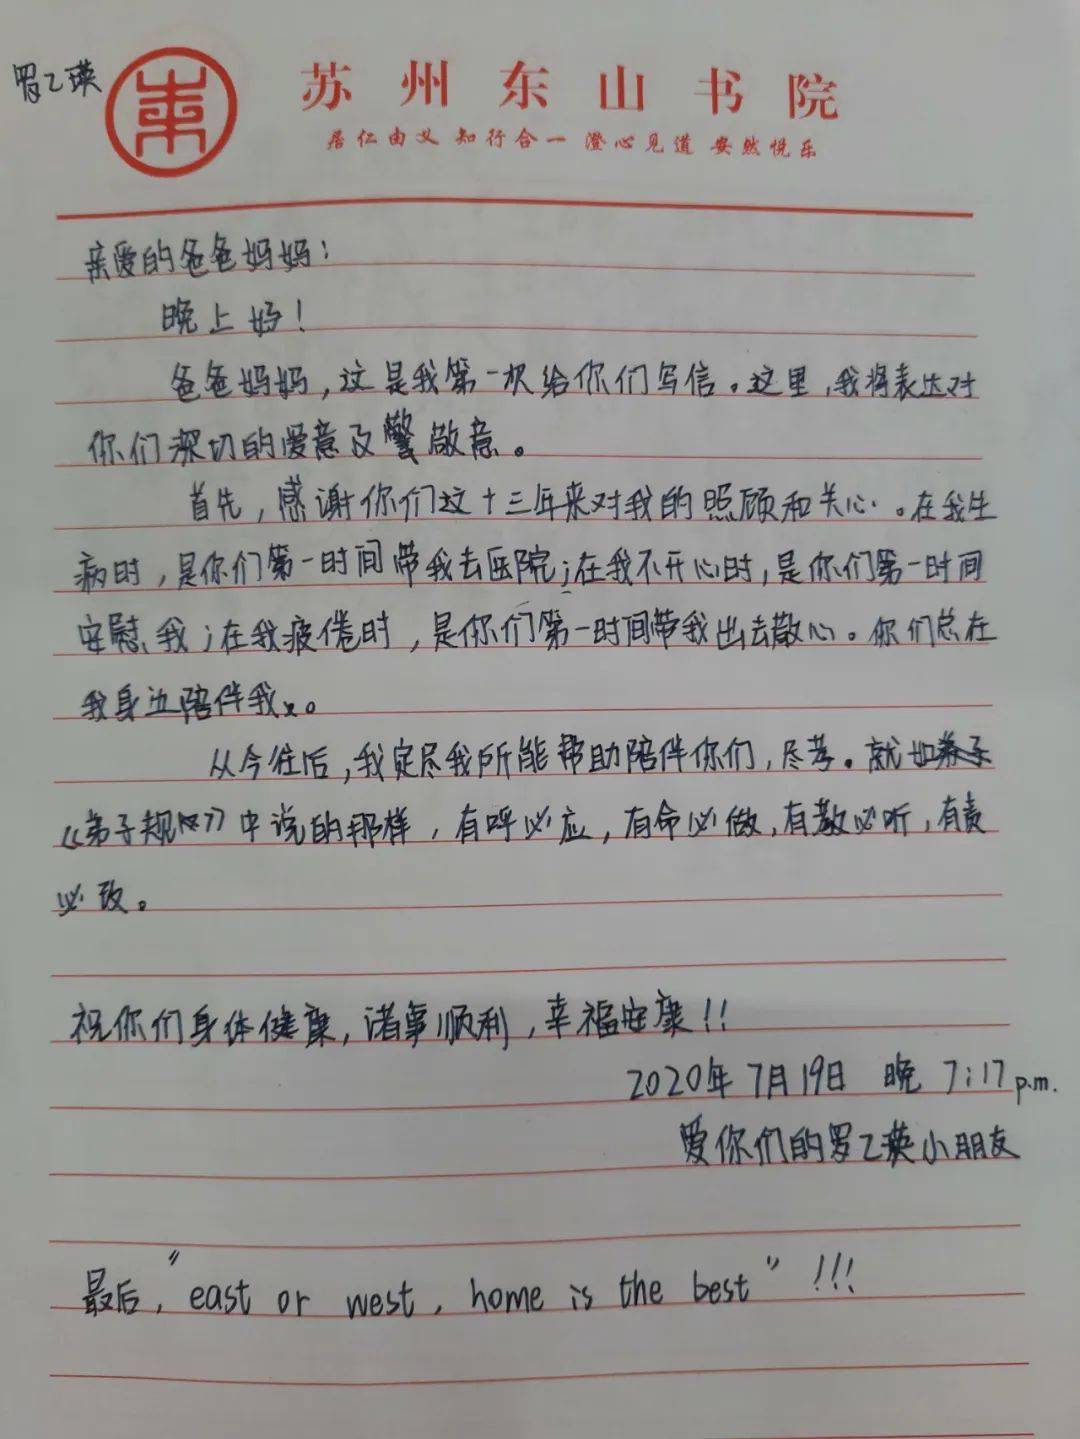 罗乙瑛
苏州东山书院
居仁由义 知行合一 澄心见道 安然悦乐
亲爱的爸爸妈妈：
晚上好！
爸爸妈妈，这是我第一次给你们写信。这里，我将表达对
你们深切的爱意及敬意。
首先，感谢你们这十三年来对我的照顾和关心。在我生
病时，是你们第一时间带我去医院；在我不开心时，是你们第一时间
安慰我；在我疲倦时，是你们第一时间带我出去散心。你们总在
我身边陪伴我。
从今往后，我定尽我所能帮助陪伴你们，尽孝。就如
《弟子规》中说的那样，有呼必应，有命必做，有教必听，有责
必改。
祝你们身体健康，诸事顺利，幸福安康！！
2020年7月19日 晚 7:17 p.m.
爱你们的罗乙瑛小朋友
最后，"east or west, home is the best"!!!